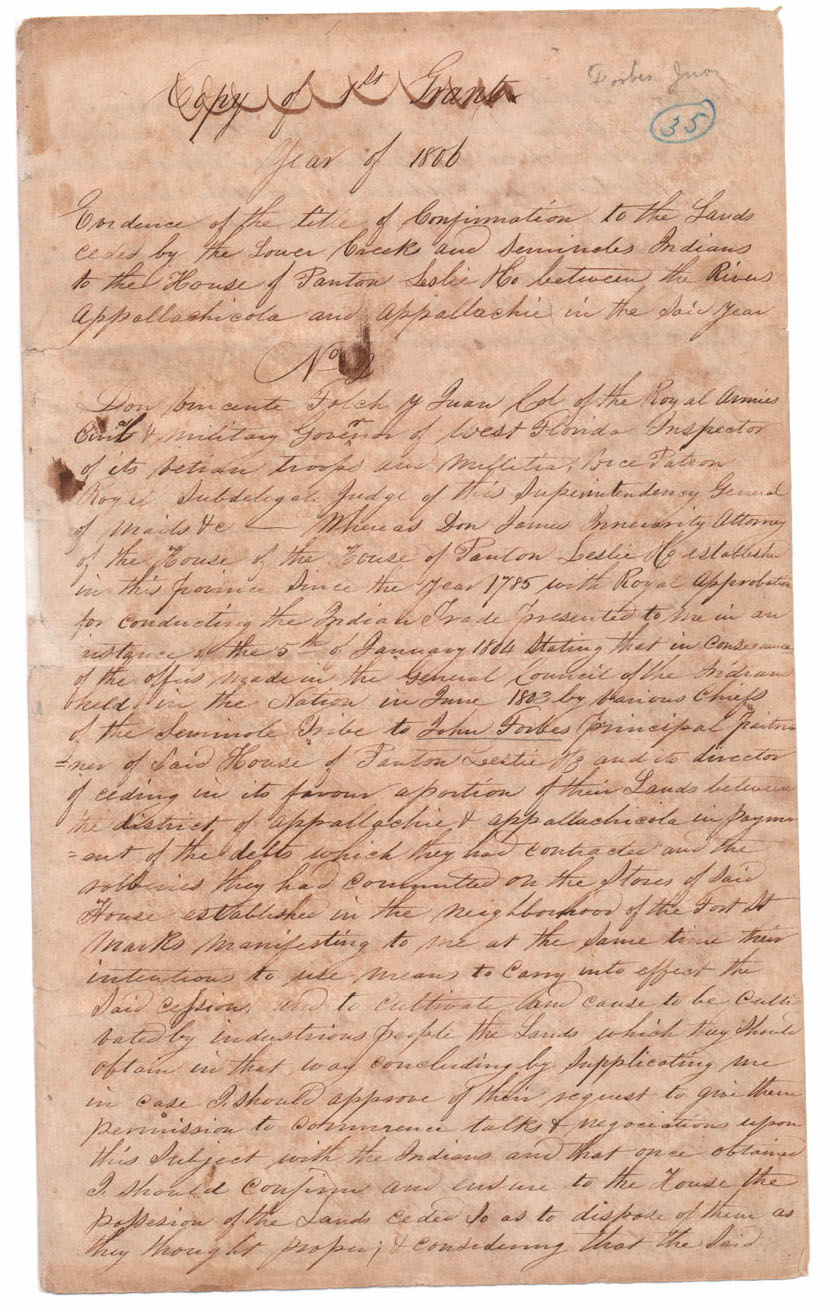 Copy of 1st Grant
Forbes Juan
35
Year of 1806
Evidence of the title of Confirmation to the Lands
ceded by the Lower Creeks and Seminoles Indians
to the House of Panton Leslie & Co between the Rivers
Appallachicola and Appallachie in the Said Year
No 2
Don Vincente Folch y Juan Col of the Royal Armies
Civil & Military Govenor of West Florida Inspector
of its vetran troops and Millitia, Vice Patron
Royal Subdelegate Judge of this Superintendency General
of Mails &c — Whereas Don James Innerarity Attorney
of the House of the House of Panton Leslie & Co establishe
in this province Since the Year 1785 with Royal Approbation
for conducting the Indian Trade presented to me in an
instance of the 5th of January 1804 Stating that in Consequence
of the offers made in the General Council of the Indians
held in the Nation in June 1803 by various Chiefs
of the Seminole Tribe to John Forbes Principal partn
=ner of Said House of Panton Leslie & Co and its director
of ceding in its favour aportion of their Lands between
the district of appallachie & appallachicola in payme
=ent of the debts which they had contracted and the
robberies they had committed on the Stores of Said
House established in the neighborhood of the Fort St
Marks manifesting to me at the Same time their
intentions to use means to Carry into effect the
Said cession, and to cultivate and cause to be culti-
vated by industrious people the Lands which they Should
obtain in that way concluding by Supplicating me
in case I should approve of their request to give them
permission to commence talks & negociations upon
this Subject with the Indians and that once obtained
I should confirm and ensure to the House the
possesion of the Lands ceded So as to dispose of them as
they thought proper; & considering that the Said